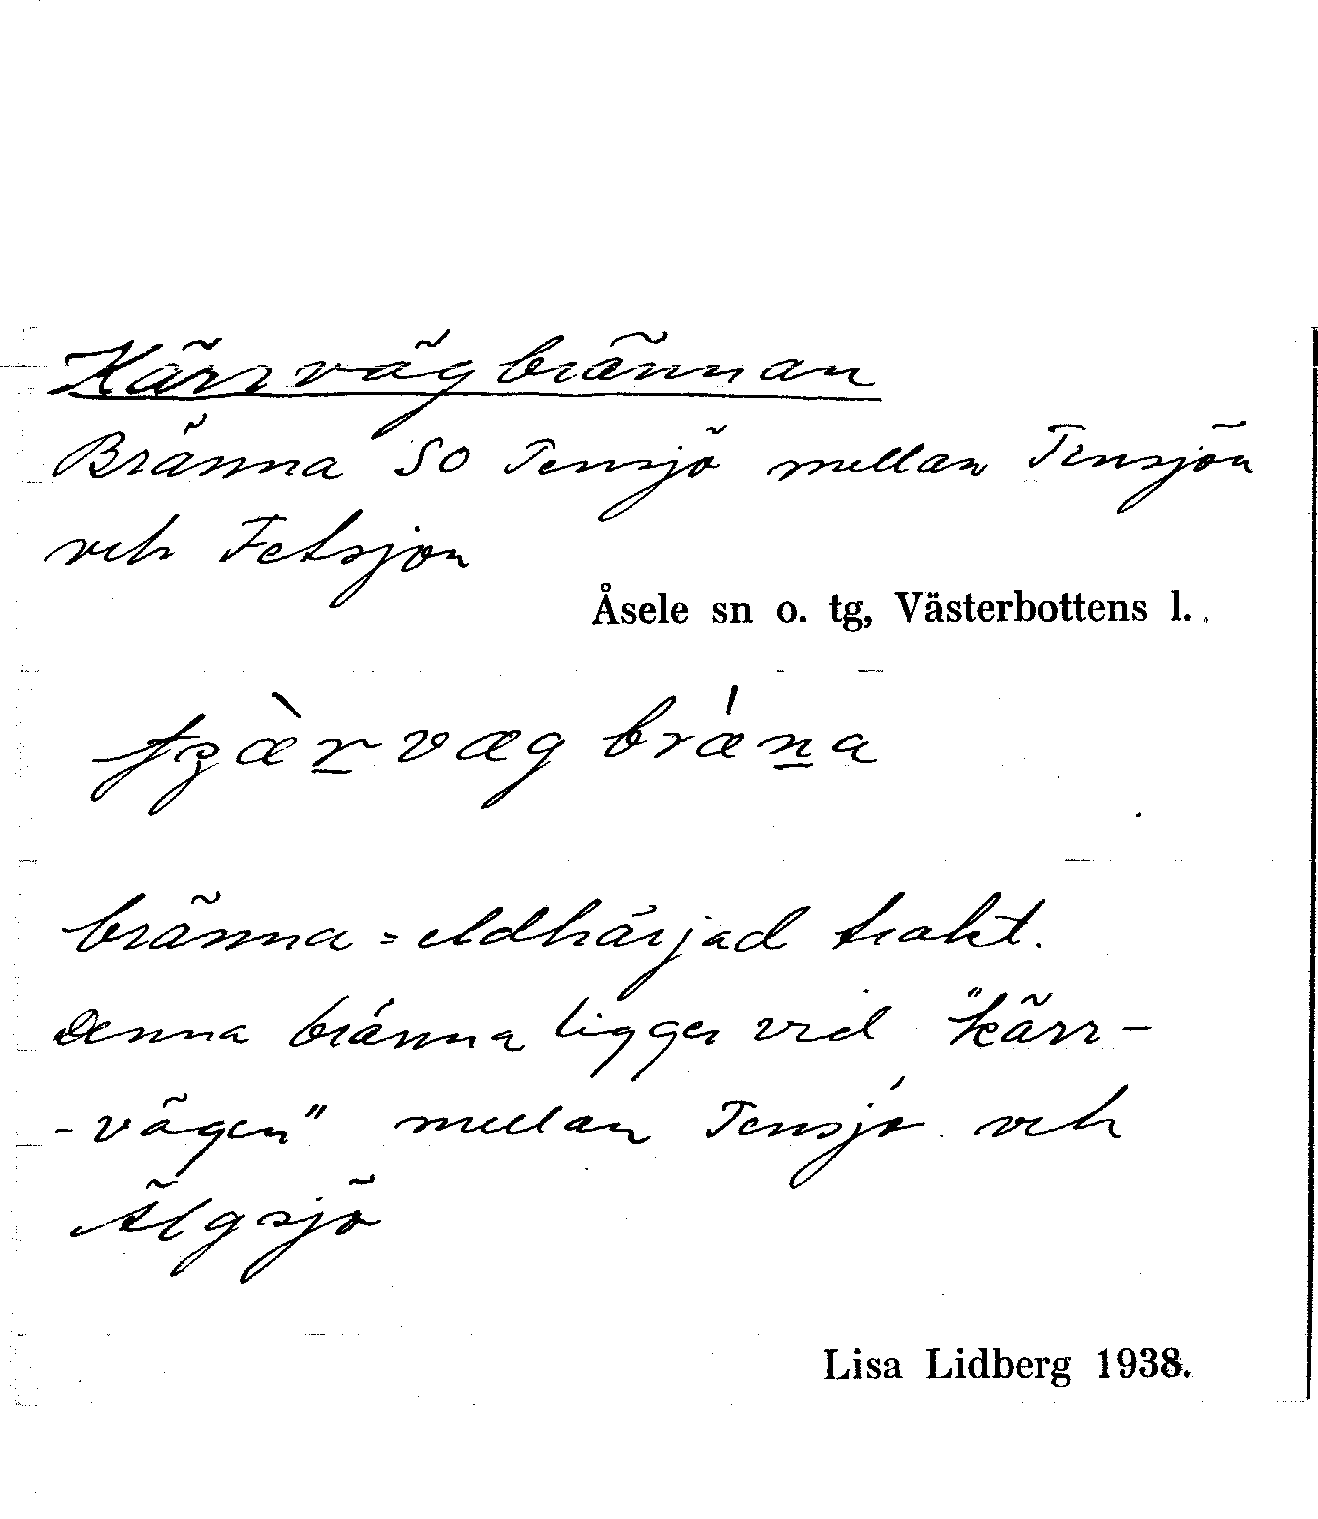 Kärrvägbrännan
Bränna SO Tensjö mellan Tensjön
och Fetsjon
Åsele sn o. tg, Västerbottens l.
bränna = eldhärjad trakt.
Denna bränna ligger vid "kärr-
-vägen" mellan Tensjö och
Älgsjö
Lisa Lidberg 1938.